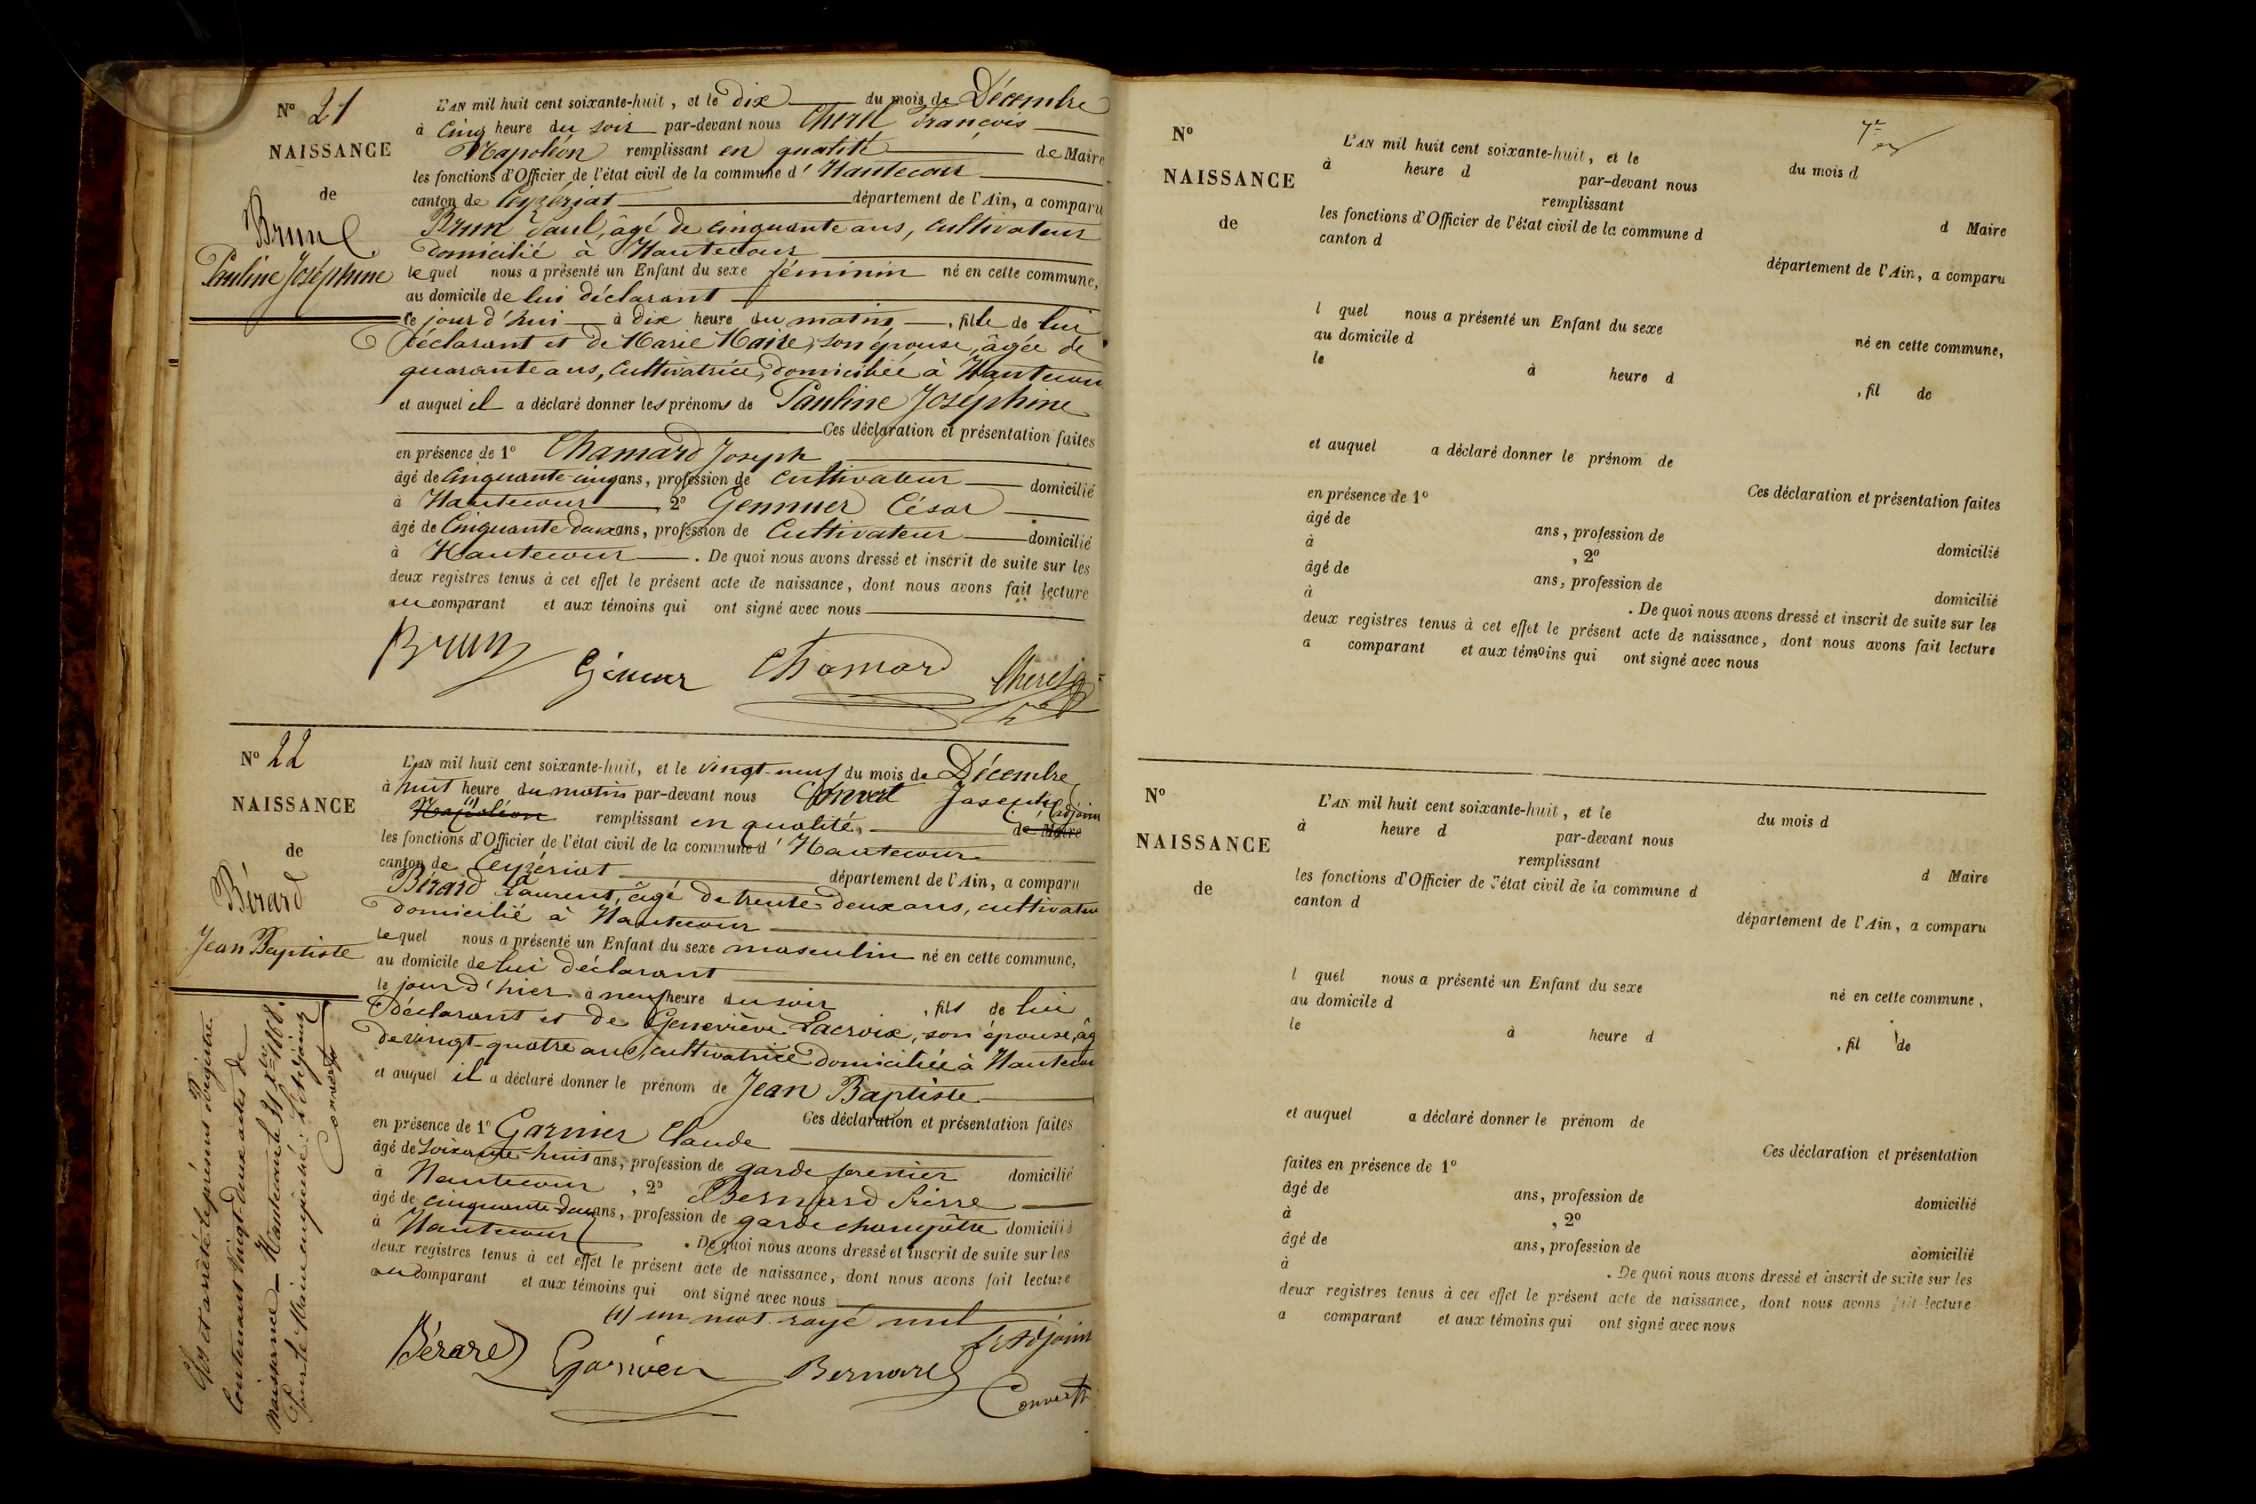 N° 21
NAISSANCE
de
Brun
Pauline Joséphine
L'AN mil huit cent soixante-huit, et le dix du mois de Décembre
à cinq heure du soir par-devant nous Cherel François
Napoléon remplissant en qualité de Maire
les fonctions d'Officier de l'état civil de la commune d' Hautecour
canton de Ceyzériat département de l'Ain, a comparu
Brun Paul, âgé de cinquante ans, cultivateur
domicilié à Hautecour
lequel nous a présenté un Enfant du sexe féminin né en cette commune,
au domicile de lui déclarant
le jour d'hui à dix heure du matin, fille de lui
déclarant et de Marie Maire, son épouse, âgée de
quarante ans, cultivatrice, domiciliée à Hautecour
et auquel il a déclaré donner les prénoms de Pauline Joséphine
Ces déclaration et présentation faites
en présence de 1° Chamard Joseph
âgé de cinquante-cinq ans, profession de cultivateur domicilié
à Hautecour 2° Gennuer César
âgé de cinquante deux ans, profession de cultivateur domicilié
à Hautecour. De quoi nous avons dressé et inscrit de suite sur les
deux registres tenus à cet effet le présent acte de naissance, dont nous avons fait lecture
au comparant et aux témoins qui ont signé avec nous
Brun Chamard Cherel
N° 22
NAISSANCE
de
Bérard
Jean Baptiste
L'AN mil huit cent soixante-huit, et le vingt-neuf du mois de Décembre
à huit heure du matin par-devant nous Convert Joseph adjoint
Napoléon remplissant en qualité, de Maire
les fonctions d'Officier de l'état civil de la commune d' Hautecour
canton de Ceyzériat département de l'Ain, a comparu
Bérard Laurent, âgé de trente deux ans, cultivateur
domicilié à Hautecour
lequel nous a présenté un Enfant du sexe masculin né en cette commune,
au domicile de lui déclarant
le jour d'hier à neuf heure du soir, fils de lui
déclarant et de Geneviève Lacroix, son épouse, âg
de vingt-quatre ans, cultivatrice domiciliée à Hautecour
et auquel il a déclaré donner le prénom de Jean Baptiste
Ces déclaration et présentation faites
en présence de 1° Garnier Claude
âgé de soixante-huit ans, profession de garde forestier domicilié
à Hautecour, 2° Bernard Pierre
âgé de cinquante-deux ans, profession de garde champêtre domicilié
à Hautecour. De quoi nous avons dressé et inscrit de suite sur les
deux registres tenus à cet effet le présent acte de naissance, dont nous avons fait lecture
au comparant et aux témoins qui ont signé avec nous
(1) un mot rayé nul
L'adjoint
Bérard Bernard Convert
Clos et arrêté le présent Registre
Contenant vingt-deux actes de
Naissance Hautecour le 31 Xbre 1868.
Pour le Maire empêché: L'adjoint
Convert
N°
NAISSANCE
de
L'AN mil huit cent soixante-huit, et le du mois d
à heure d par-devant nous
remplissant d Maire
les fonctions d'Officier de l'état civil de la commune d
canton d département de l'Ain, a comparu
l quel nous a présenté un Enfant du sexe né en cette commune,
au domicile d
le à heure d , fil de
et auquel a déclaré donner le prénom de
Ces déclaration et présentation faites
en présence de 1°
âgé de ans, profession de domicilié
à , 2°
âgé de ans, profession de domicilié
à . De quoi nous avons dressé et inscrit de suite sur les
deux registres tenus à cet effet le présent acte de naissance, dont nous avons fait lecture
a comparant et aux témoins qui ont signé avec nous
N°
NAISSANCE
de
L'AN mil huit cent soixante-huit, et le du mois d
à heure d par-devant nous
remplissant d Maire
les fonctions d'Officier de l'état civil de la commune d
canton d département de l'Ain, a comparu
l quel nous a présenté un Enfant du sexe né en cette commune,
au domicile d
le à heure d , fil de
et auquel a déclaré donner le prénom de
Ces déclaration et présentation
faites en présence de 1°
âgé de ans, profession de domicilié
à , 2°
âgé de ans, profession de domicilié
à . De quoi nous avons dressé et inscrit de suite sur les
deux registres tenus à cet effet le présent acte de naissance, dont nous avons fait lecture
a comparant et aux témoins qui ont signé avec nous